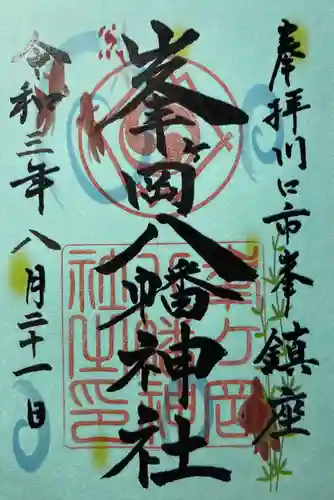 奉拝川口市峯鎮座
峯ヶ岡八幡神社
令和三年八月二十一日
峯ヶ岡八幡神社之印